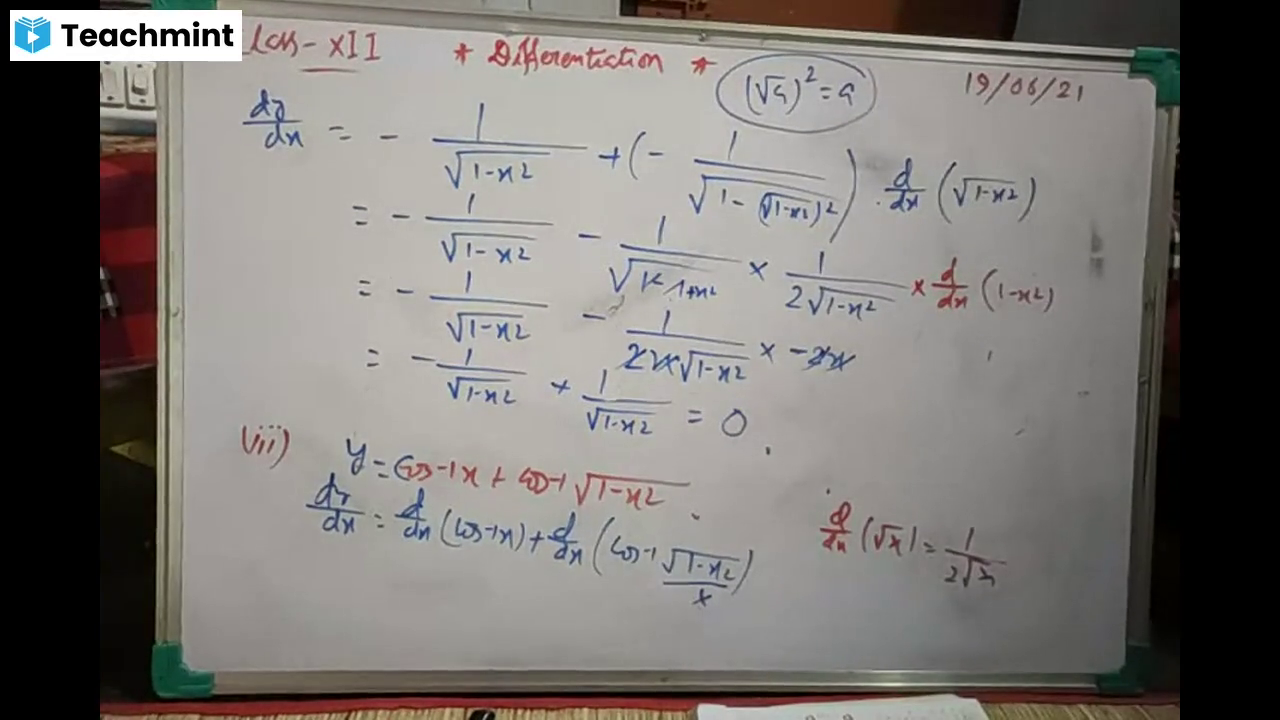 Teachmint
Class - XII * Differentiation * (√a)² = a 19/06/21
dy/dx = - 1/√(1-x²) + (- 1/√(1-(√(1-x²))²)) . d/dx (√(1-x²))
= - 1/√(1-x²) - 1/√(1-1+x²) × 1/(2√(1-x²)) × d/dx (1-x²)
= - 1/√(1-x²) - 1/(2x√(1-x²)) × -2x
= - 1/√(1-x²) + 1/√(1-x²) = 0.
vii) y = cos-1x + cos-1 √(1-x²).
dy/dx = d/dx (cos-1x) + d/dx (cos-1 √(1-x²)/x)
d/dx (√x) = 1/(2√x)